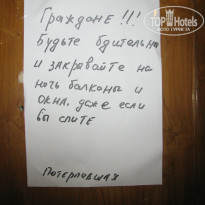 Граждане !!!
Будьте бдительны
и закрывайте на
ночь балконы и
окна, даже если
вы спите
Потерпевшая
TopHotels